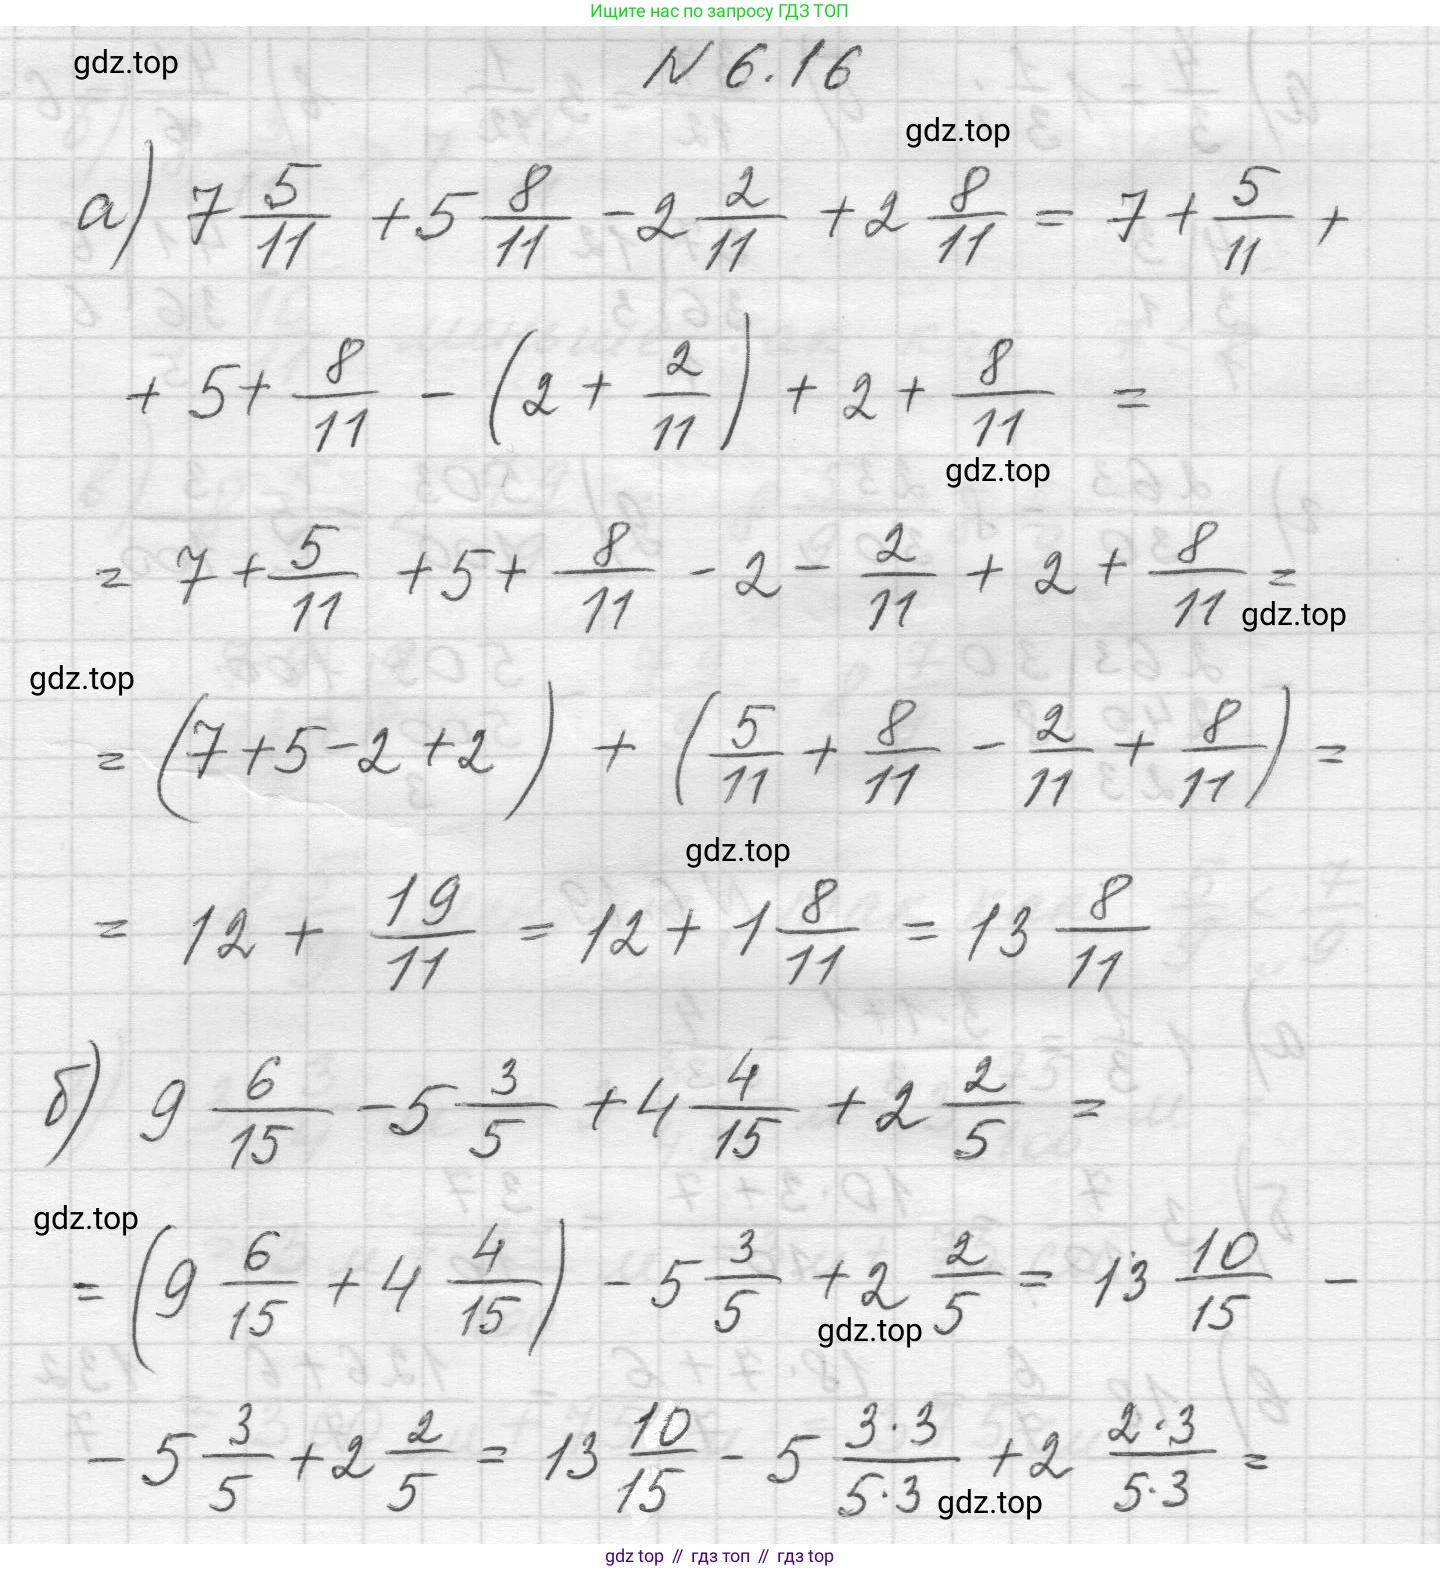 Ищите нас по запросу ГДЗ ТОП
gdz.top
N 6.16
gdz.top
а) 7 5/11 + 5 8/11 - 2 2/11 + 2 8/11 = 7 + 5/11 +
+ 5 + 8/11 - (2 + 2/11) + 2 + 8/11 =
gdz.top
= 7 + 5/11 + 5 + 8/11 - 2 - 2/11 + 2 + 8/11 =
gdz.top
gdz.top
= (7 + 5 - 2 + 2) + (5/11 + 8/11 - 2/11 + 8/11) =
gdz.top
= 12 + 19/11 = 12 + 1 8/11 = 13 8/11
б) 9 6/15 - 5 3/5 + 4 4/15 + 2 2/5 =
gdz.top
= (9 6/15 + 4 4/15) - 5 3/5 + 2 2/5 = 13 10/15 -
gdz.top
- 5 3/5 + 2 2/5 = 13 10/15 - 5 3·3/5·3 + 2 2·3/5·3 =
gdz.top
gdz top // гдз топ // гдз top